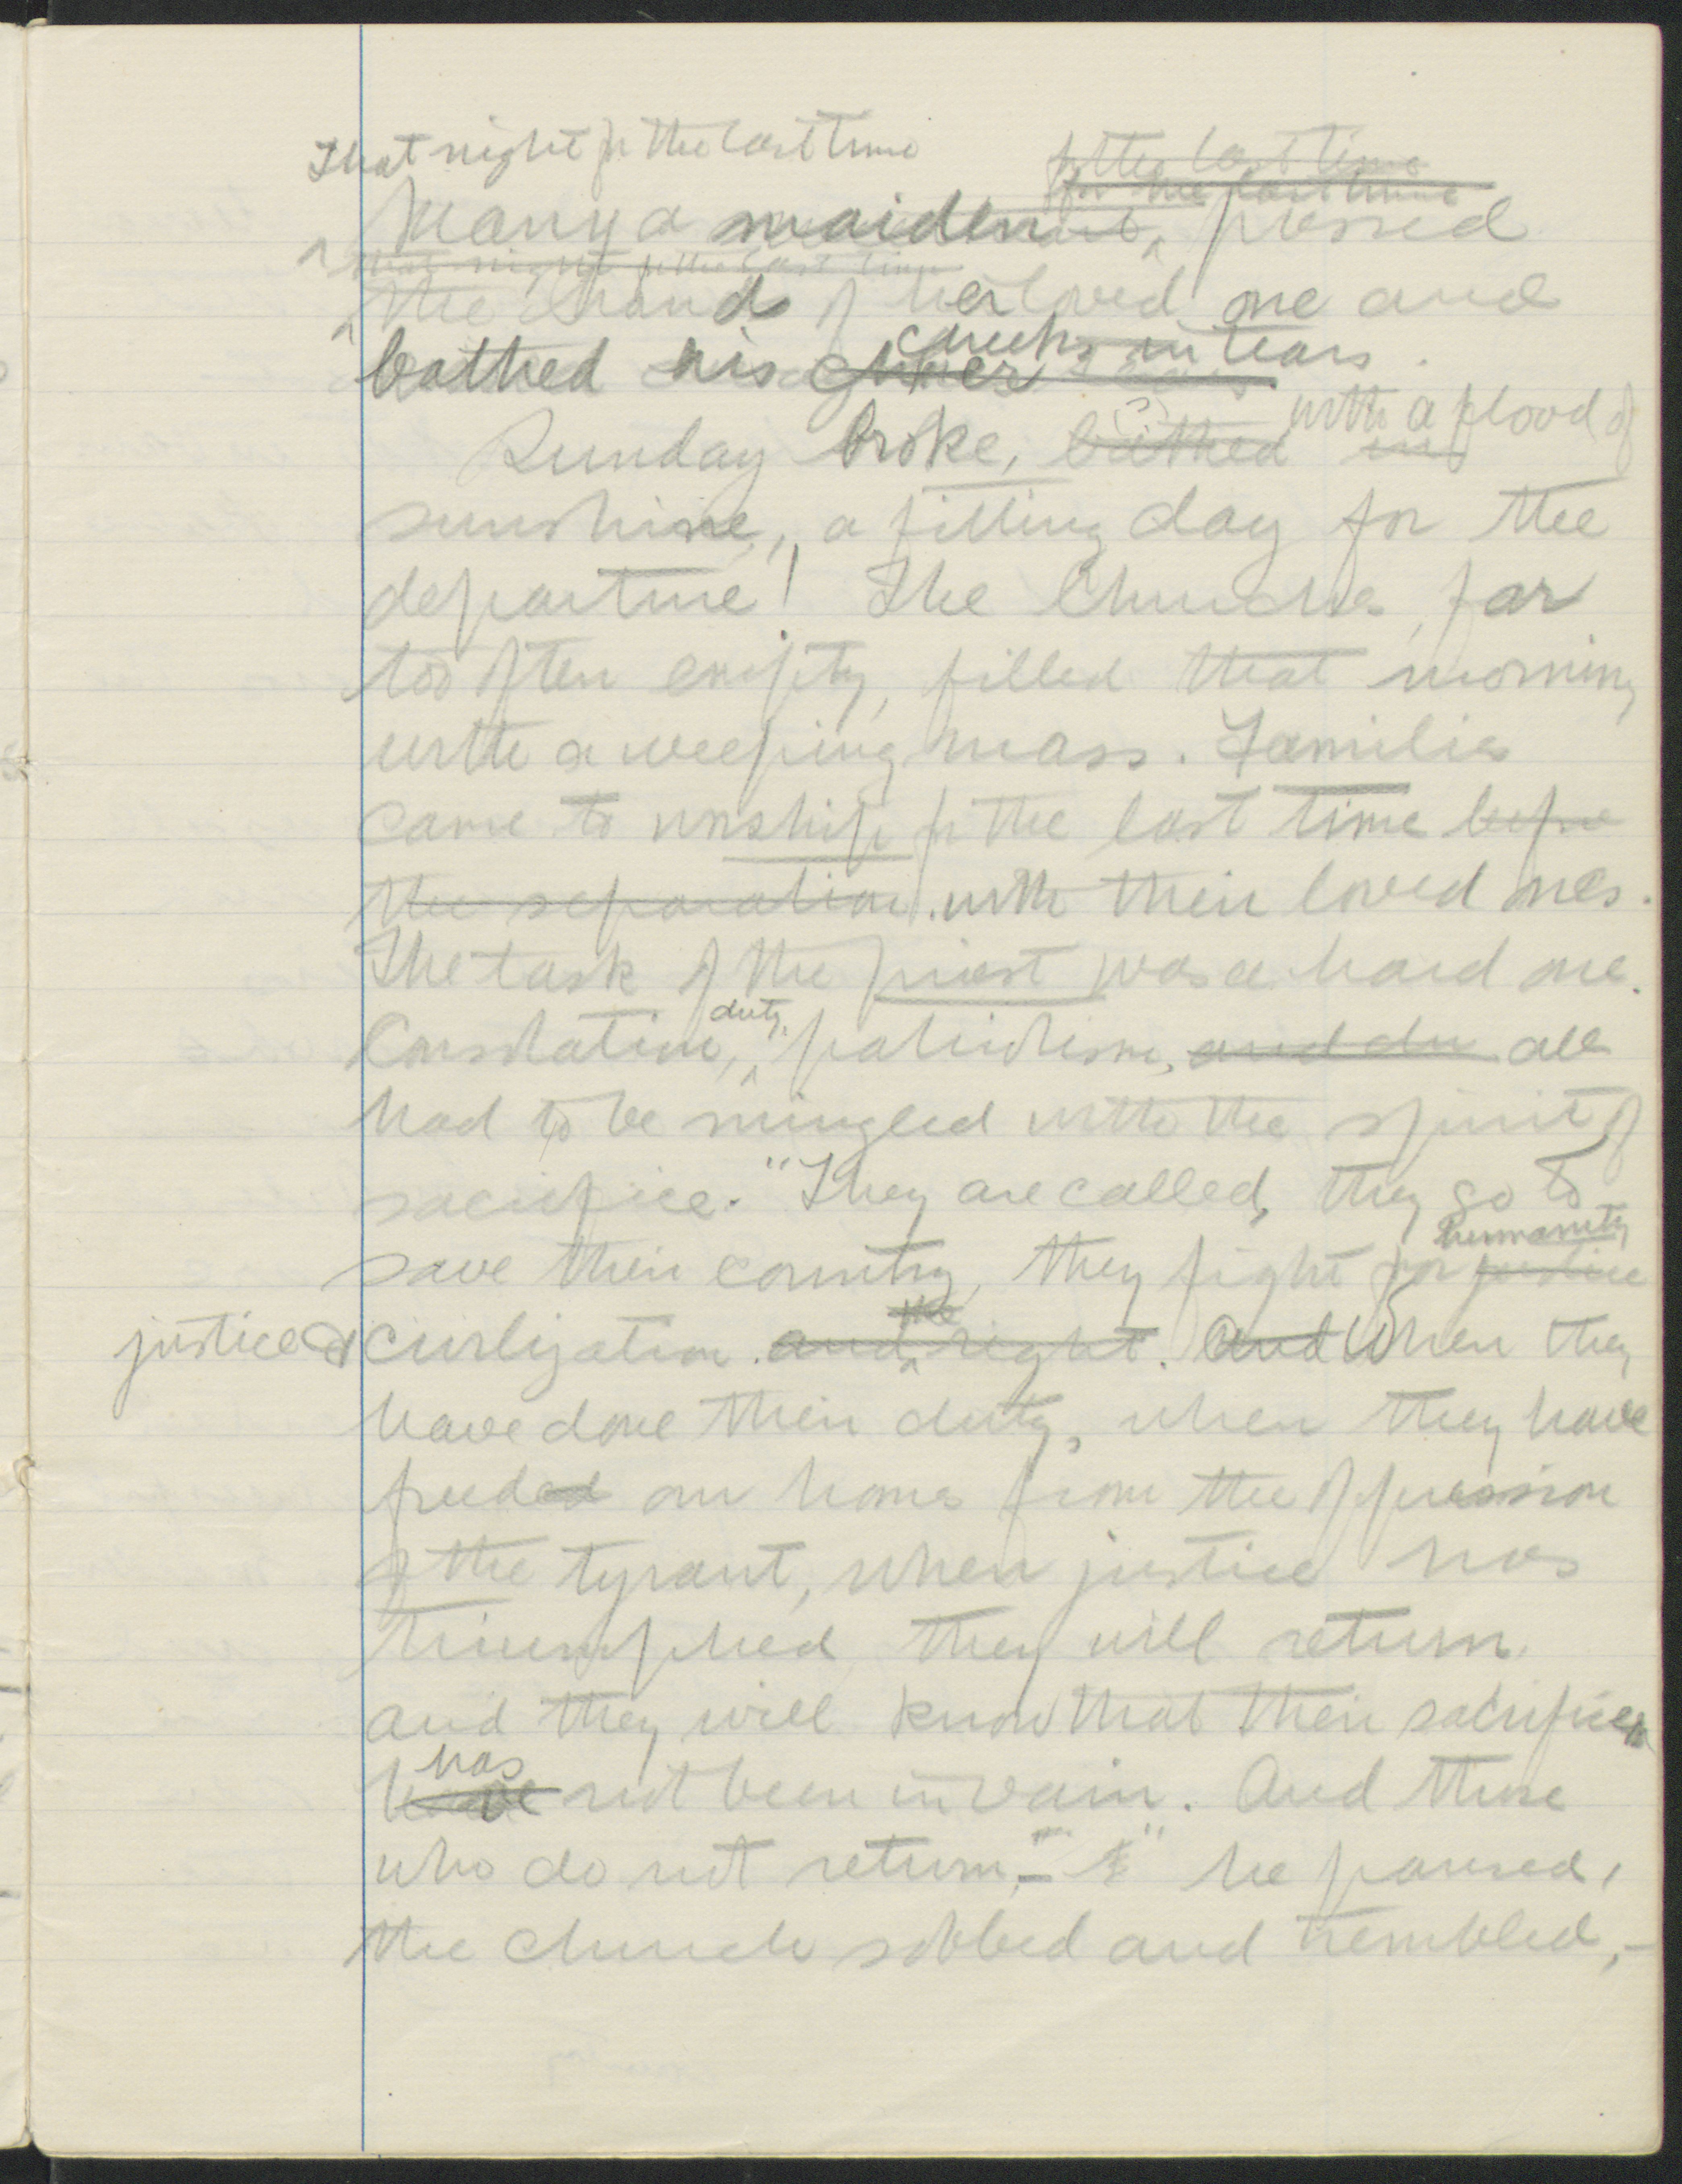 That night for the last time
for the last time
for the last time
Many a maiden pressed
that night for the last time
the hand of her loved one and
cheeks in tears.
bathed his
with a flood of
Sunday broke, bathed in
sunshine, a fitting day for the
departure! The Churches, far
too often empty, filled that morning
with a weeping mass. Families
came to worship for the last time before
the separation. with their loved ones.
The task of the priest was a hard one.
duty,
Consolation, patriotism, and du all
had to be mingled with the spirit of
sacrifice. "They are called, they go to
humanity
save their country, they fight for justice
the
justice & civilization. and right. and When they
have done their duty, when they have
freed our homes from the oppression
of the tyrant, when justice has
triumphed they will return
and they will know that their sacrifices
has
have not been in vain. And those
who do not return,-" he paused,
the church sobbed and trembled,-